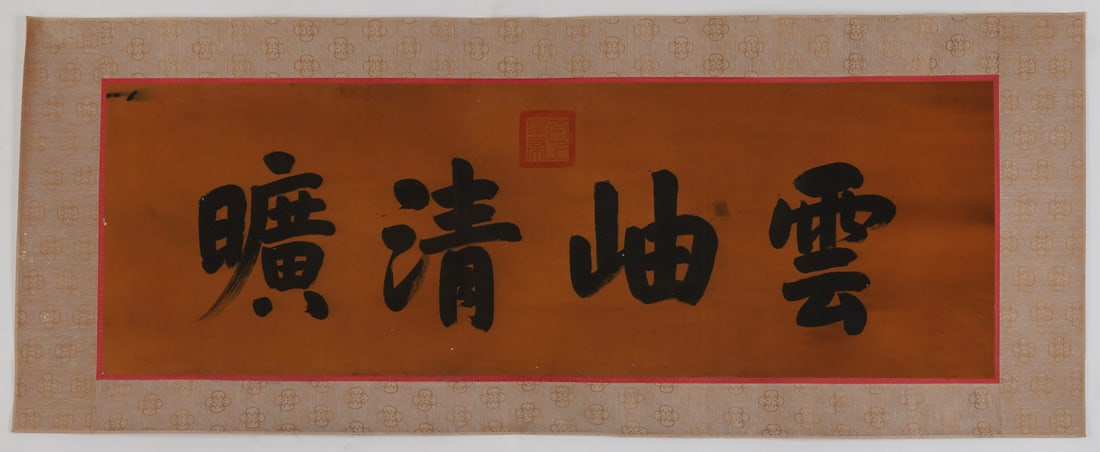 雲岫清曠